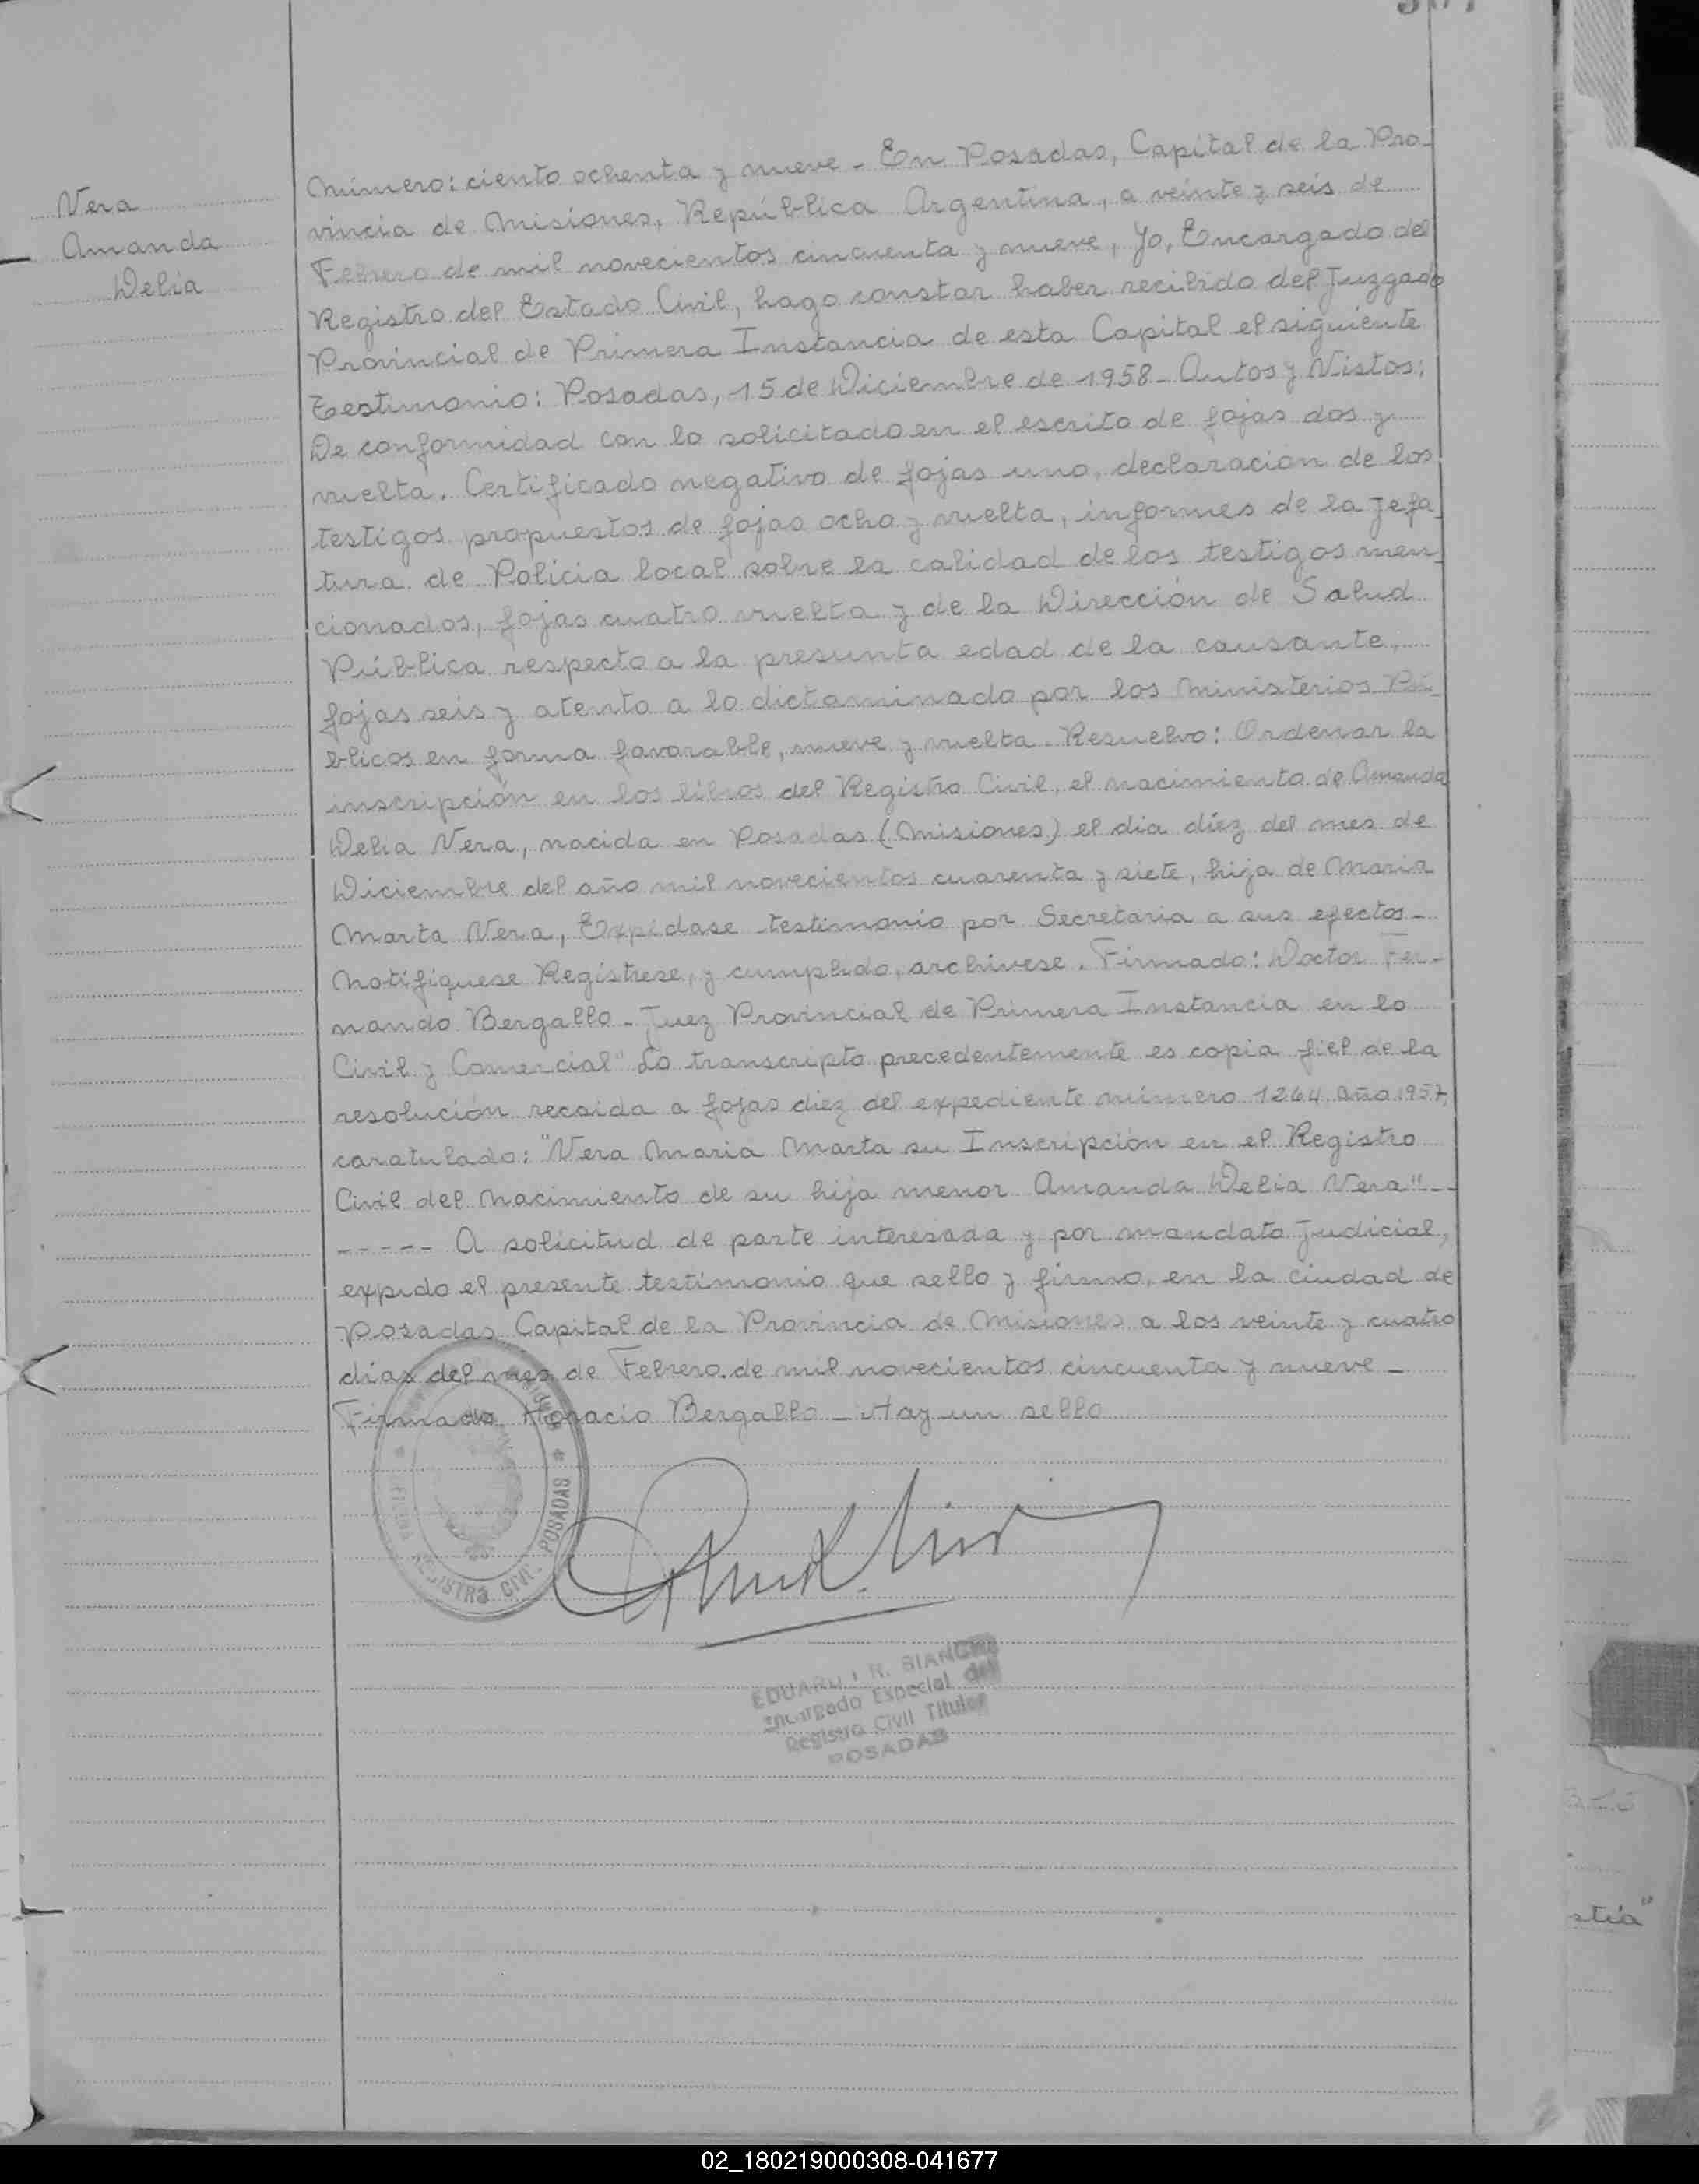 Vera
Amanda
Delia
Número: ciento ochenta y nueve - En Posadas, Capital de la Pro-
vincia de Misiones, República Argentina, a veinte y seis de
Febrero de mil novecientos cincuenta y nueve, Yo, Encargado del
Registro del Estado Civil, hago constar haber recibido del Juzgado
Provincial de Primera Instancia de esta Capital el siguiente
testimonio: Posadas, 15 de Diciembre de 1958 - Autos y Vistos:
De conformidad con lo solicitado en el escrito de fojas dos y
vuelta. Certificado negativo de fojas uno, declaracion de los
testigos propuestos de fojas ocho y vuelta, informes de la Jefa-
tura de Policia local sobre la calidad de los testigos men-
cionados, fojas cuatro vuelta y de la Dirección de Salud
Pública respecto a la presunta edad de la causante,
fojas seis y atento a lo dictaminado por los Ministerios Pú-
blicos en forma favorable, nueve y vuelta. Resuelvo: Ordenar la
inscripción en los libros del Registro Civil, el nacimiento de Amanda
Delia Vera, nacida en Posadas (Misiones) el dia díez del mes de
Diciembre del año mil novecientos cuarenta y siete, hija de Maria
Marta Vera, Expídase testimonio por Secretaria a sus efectos -
Notifíquese Regístrese, y cumplido, archívese. Firmado: Doctor Fer-
nando Bergallo - Juez Provincial de Primera Instancia en lo
Civil y Comercial" Lo transcripto precedentemente es copia fiel de la
resolución recaida a fojas diez del expediente número 1264 año 1957,
caratulado: "Vera Maria Marta su Inscripción en el Registro
Civil del Nacimiento de su hija menor Amanda Delia Vera" --
----- A solicitud de parte interesada y por mandato judicial,
expido el presente testimonio que sello y firmo, en la ciudad de
Posadas Capital de la Provincia de Misiones a los veinte y cuatro
días del mes de Febrero de mil novecientos cincuenta y nueve -
Firmado Horacio Bergallo - Hay un sello
REGISTRO CIVIL POSADAS
R. BIANCHI
Encargado Especial del
Registro Civil Titular
POSADAS
stia"
02_180219000308-041677